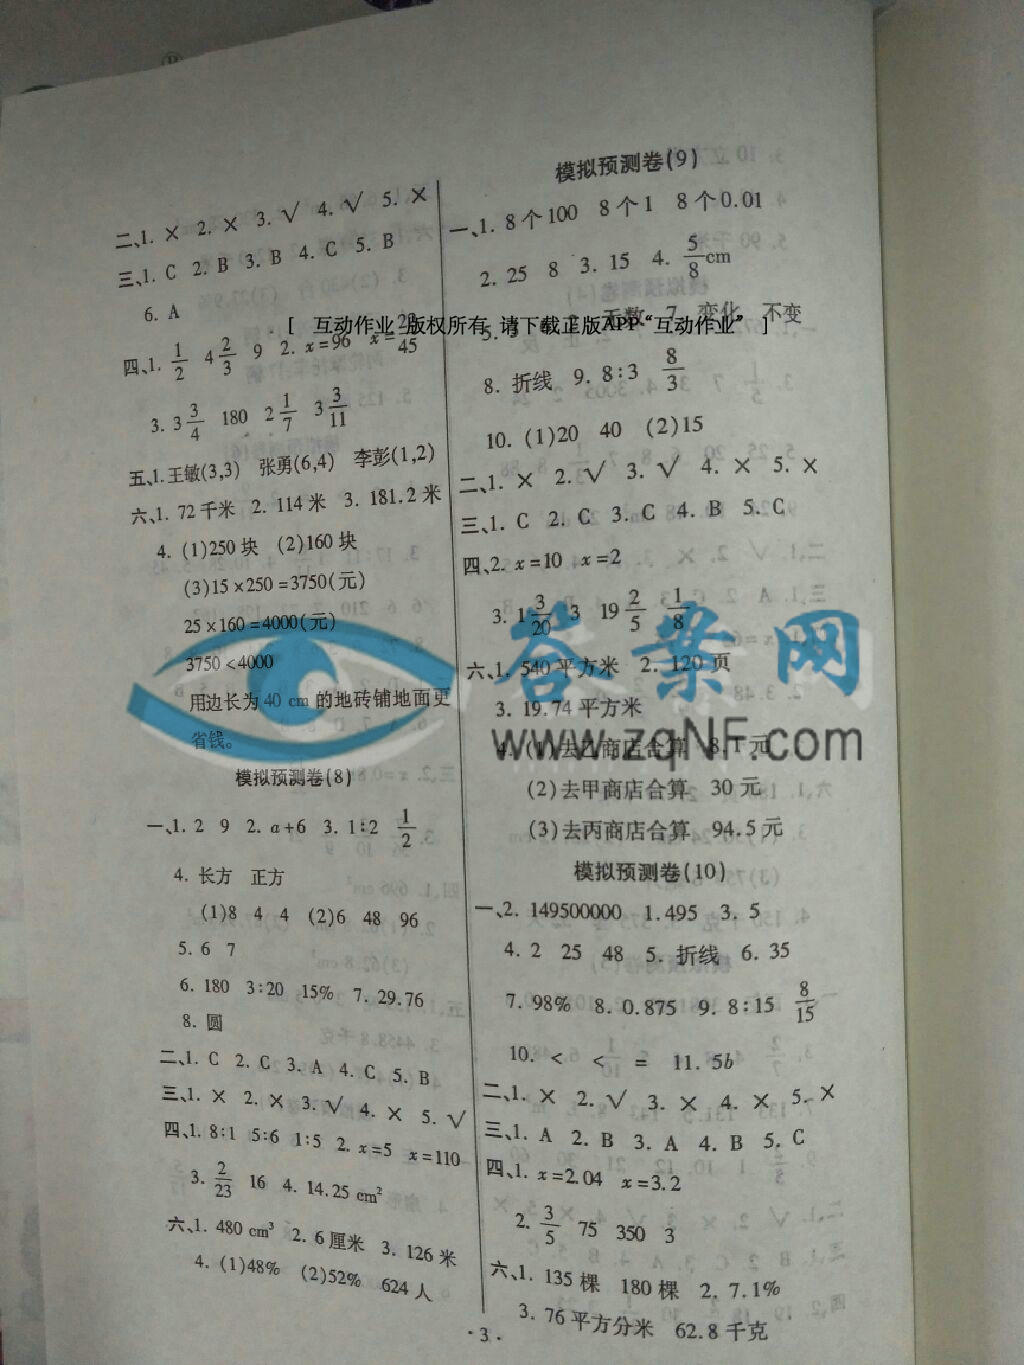 二、1. × 2. × 3. √ 4. √ 5. ×
三、1. C 2. B 3. B 4. C 5. B
6. A
四、1. 1/2 4 2/3 9 2. x=96 x=28/45
3. 3 3/4 180 2 1/7 3 3/11
五、1. 王敏(3,3) 张勇(6,4) 李彭(1,2)
六、1. 72千米 2. 114米 3. 181.2米
4. (1)250块 (2)160块
(3)15×250=3750(元)
25×160=4000(元)
3750<4000
用边长为40 cm的地砖铺地面更
省钱。
模拟预测卷(8)
一、1. 2 9 2. a+6 3. 1∶2 1/2
4. 长方 正方
(1)8 4 4 (2)6 48 96
5. 6 7
6. 180 3∶20 15% 7. 29.76
8. 圆
二、1. C 2. C 3. A 4. C 5. B
三、1. × 2. × 3. √ 4. × 5. √
四、1. 8∶1 5∶6 1∶5 2. x=5 x=110
3. 2/23 16 4. 14.25 cm²
六、1. 480 cm³ 2. 6厘米 3. 126米
4. (1)48% (2)52% 624人
模拟预测卷(9)
一、1. 8个100 8个1 8个0.01
2. 25 8 3. 15 4. 5/8 cm
无数 7. 变化 不变
[ 互动作业 版权所有 请下载正版APP“互动作业” ]
8. 折线 9. 8∶3 8/3
10. (1)20 40 (2)15
二、1. × 2. √ 3. √ 4. × 5. ×
三、1. C 2. C 3. C 4. B 5. C
四、2. x=10 x=2
3. 1 3/20 3 19 2/5 1/8
六、1. 540平方米 2. 120页
3. 19.74平方米
4. (1)去乙商店合算 8.1元
(2)去甲商店合算 30元
(3)去丙商店合算 94.5元
答案网
www.zqNF.com
模拟预测卷(10)
一、2. 149500000 1.495 3. 5
4. 2 25 48 5. 折线 6. 35
7. 98% 8. 0.875 9. 8∶15 8/15
10. < < = 11. 5b
二、1. × 2. √ 3. × 4. × 5. ×
三、1. A 2. B 3. A 4. B 5. C
四、1. x=2.04 x=3.2
2. 3/5 75 350 3
六、1. 135棵 180棵 2. 7.1%
3. 76平方分米 62.8千克
· 3 ·